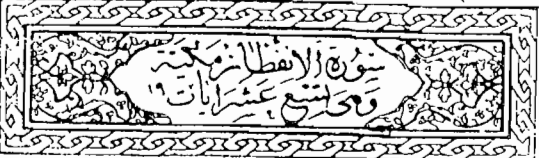 سُورَة الانفطار مكية
وهي تسع عشرايات ١٩